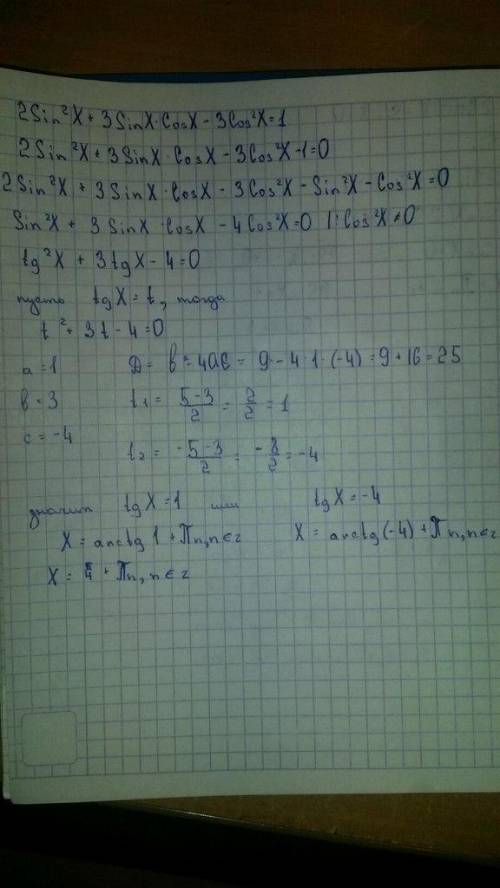 2Sin²X + 3SinX·CosX - 3Cos²X=1
2Sin²X + 3SinX·CosX - 3Cos²X-1=0
2Sin²X + 3SinX·CosX - 3Cos²X - Sin²X - Cos²X=0
Sin²X + 3SinX·CosX - 4Cos²X=0 |:Cos²X≠0
tg²X + 3tgX - 4=0
пусть tgX=t, тогда
t² + 3t - 4=0
a=1 D= b²-4ac = 9 - 4·1·(-4) = 9+16=25
b=3 t₁ = (5-3)/2 = 2/2 = 1
c=-4 t₂ = (-5-3)/2 = -8/2 = -4
значит tgX=1 или tgX=-4
X= arctg 1 + Πn, n∈z X= arctg(-4) + Πn, n∈z
X= π/4 + Πn, n∈z